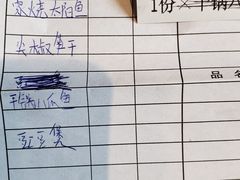 家烧太阳鱼
1份×干锅八
尖椒鱼干
品名
干锅八爪鱼
豇豆煲